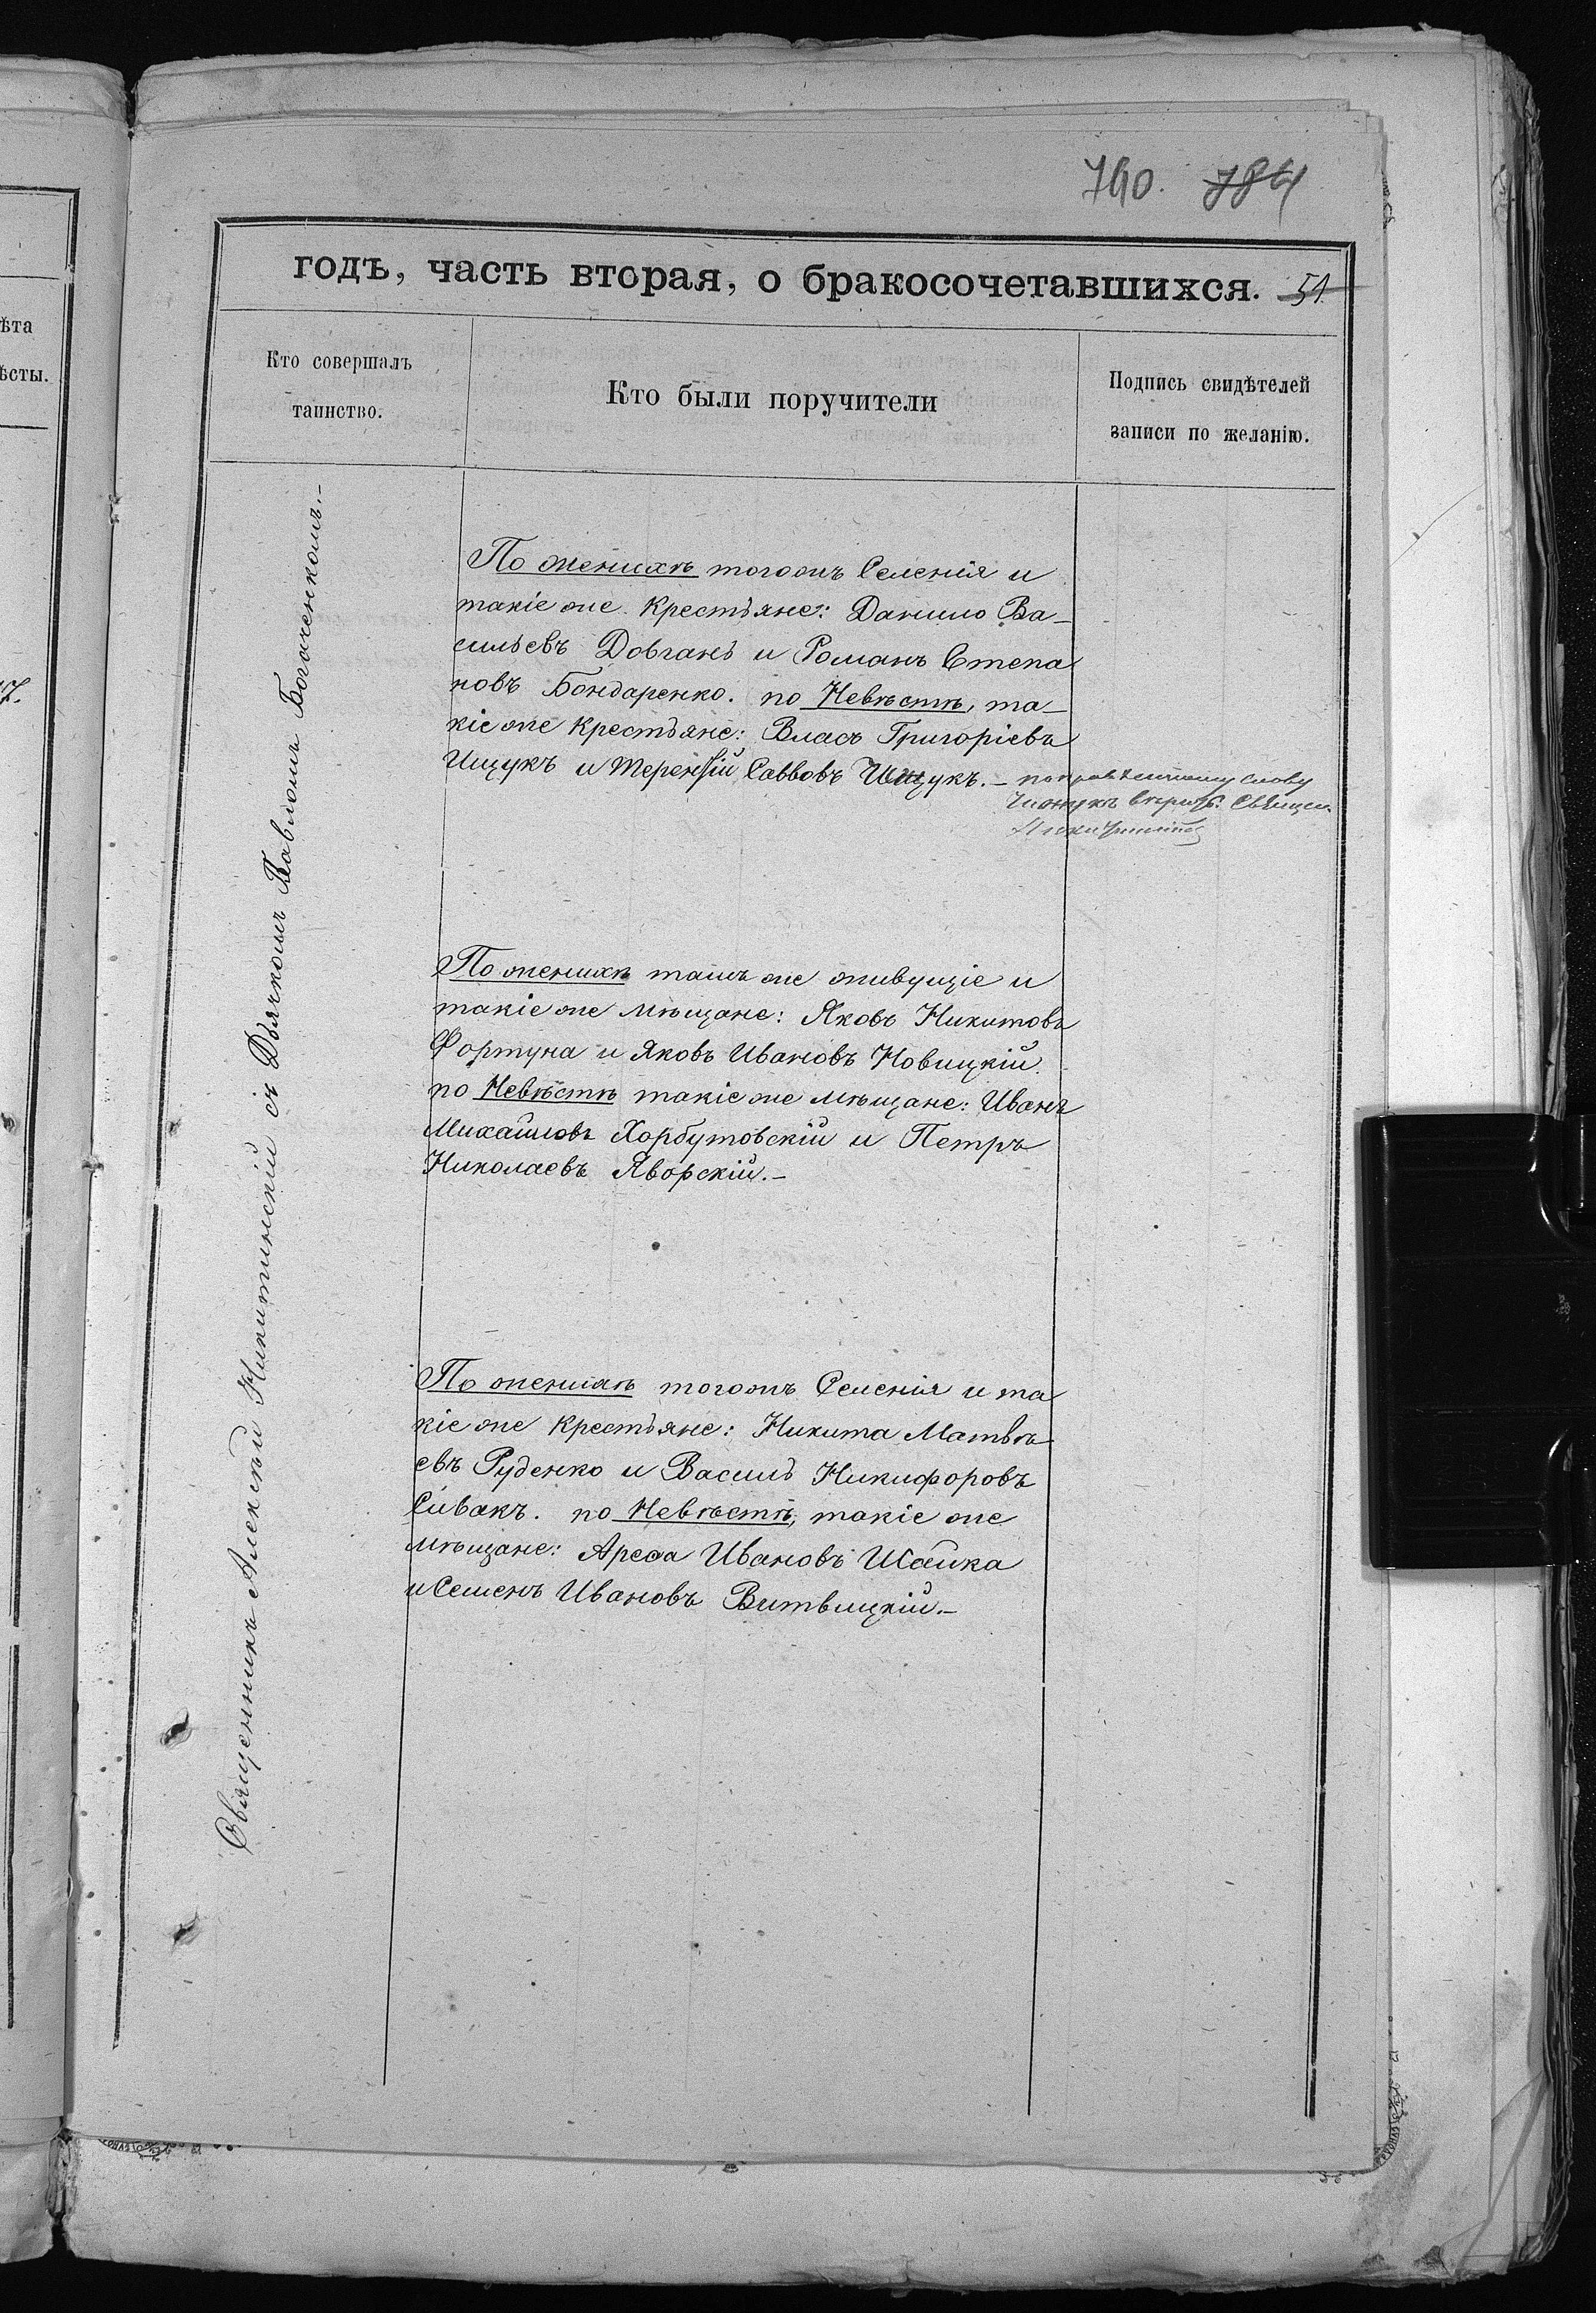 790. 784
годъ, часть вторая, о бракосочетавшихся. 51
ѣта
ѣсты.
7.
Кто совершалъ
таинство.
Кто были поручители
Подпись свидѣтелей
записи по желанію.
Священникъ Алексѣй Никитинскій съ Дьячкомъ Павломъ Богаченкомъ.-
По женихѣ тогожъ Селенія и
такіе же Крестьяне: Данило Ва-
сильевъ Довгань и Романъ Степа
новъ Бондаренко. по Невѣстѣ, та-
кіе же Крестьяне: Власъ Григоріевъ
Ищукъ и Терентій Саввовъ Ищукъ. - поправленному слову
вѣрить. Священ.
По женихѣ тамъ же живущіе и
такіе же мѣщане: Яковъ Никитовъ
Фортуна и Яковъ Ивановъ Новицкій.
по Невѣстѣ такіе же мѣщане: Иванъ
Михайловъ Хорбутовскій и Петръ
Николаевъ Яворскій.-
По женихѣ тогожъ Селенія и та
кіе же Крестьяне: Никита Матвѣ-
евъ Руденко и Василь Никифоровъ
Сивакъ. по Невѣстѣ, такіе же
мѣщане: Ивановъ Шайка
и Семенъ Ивановъ Витвицкій.-